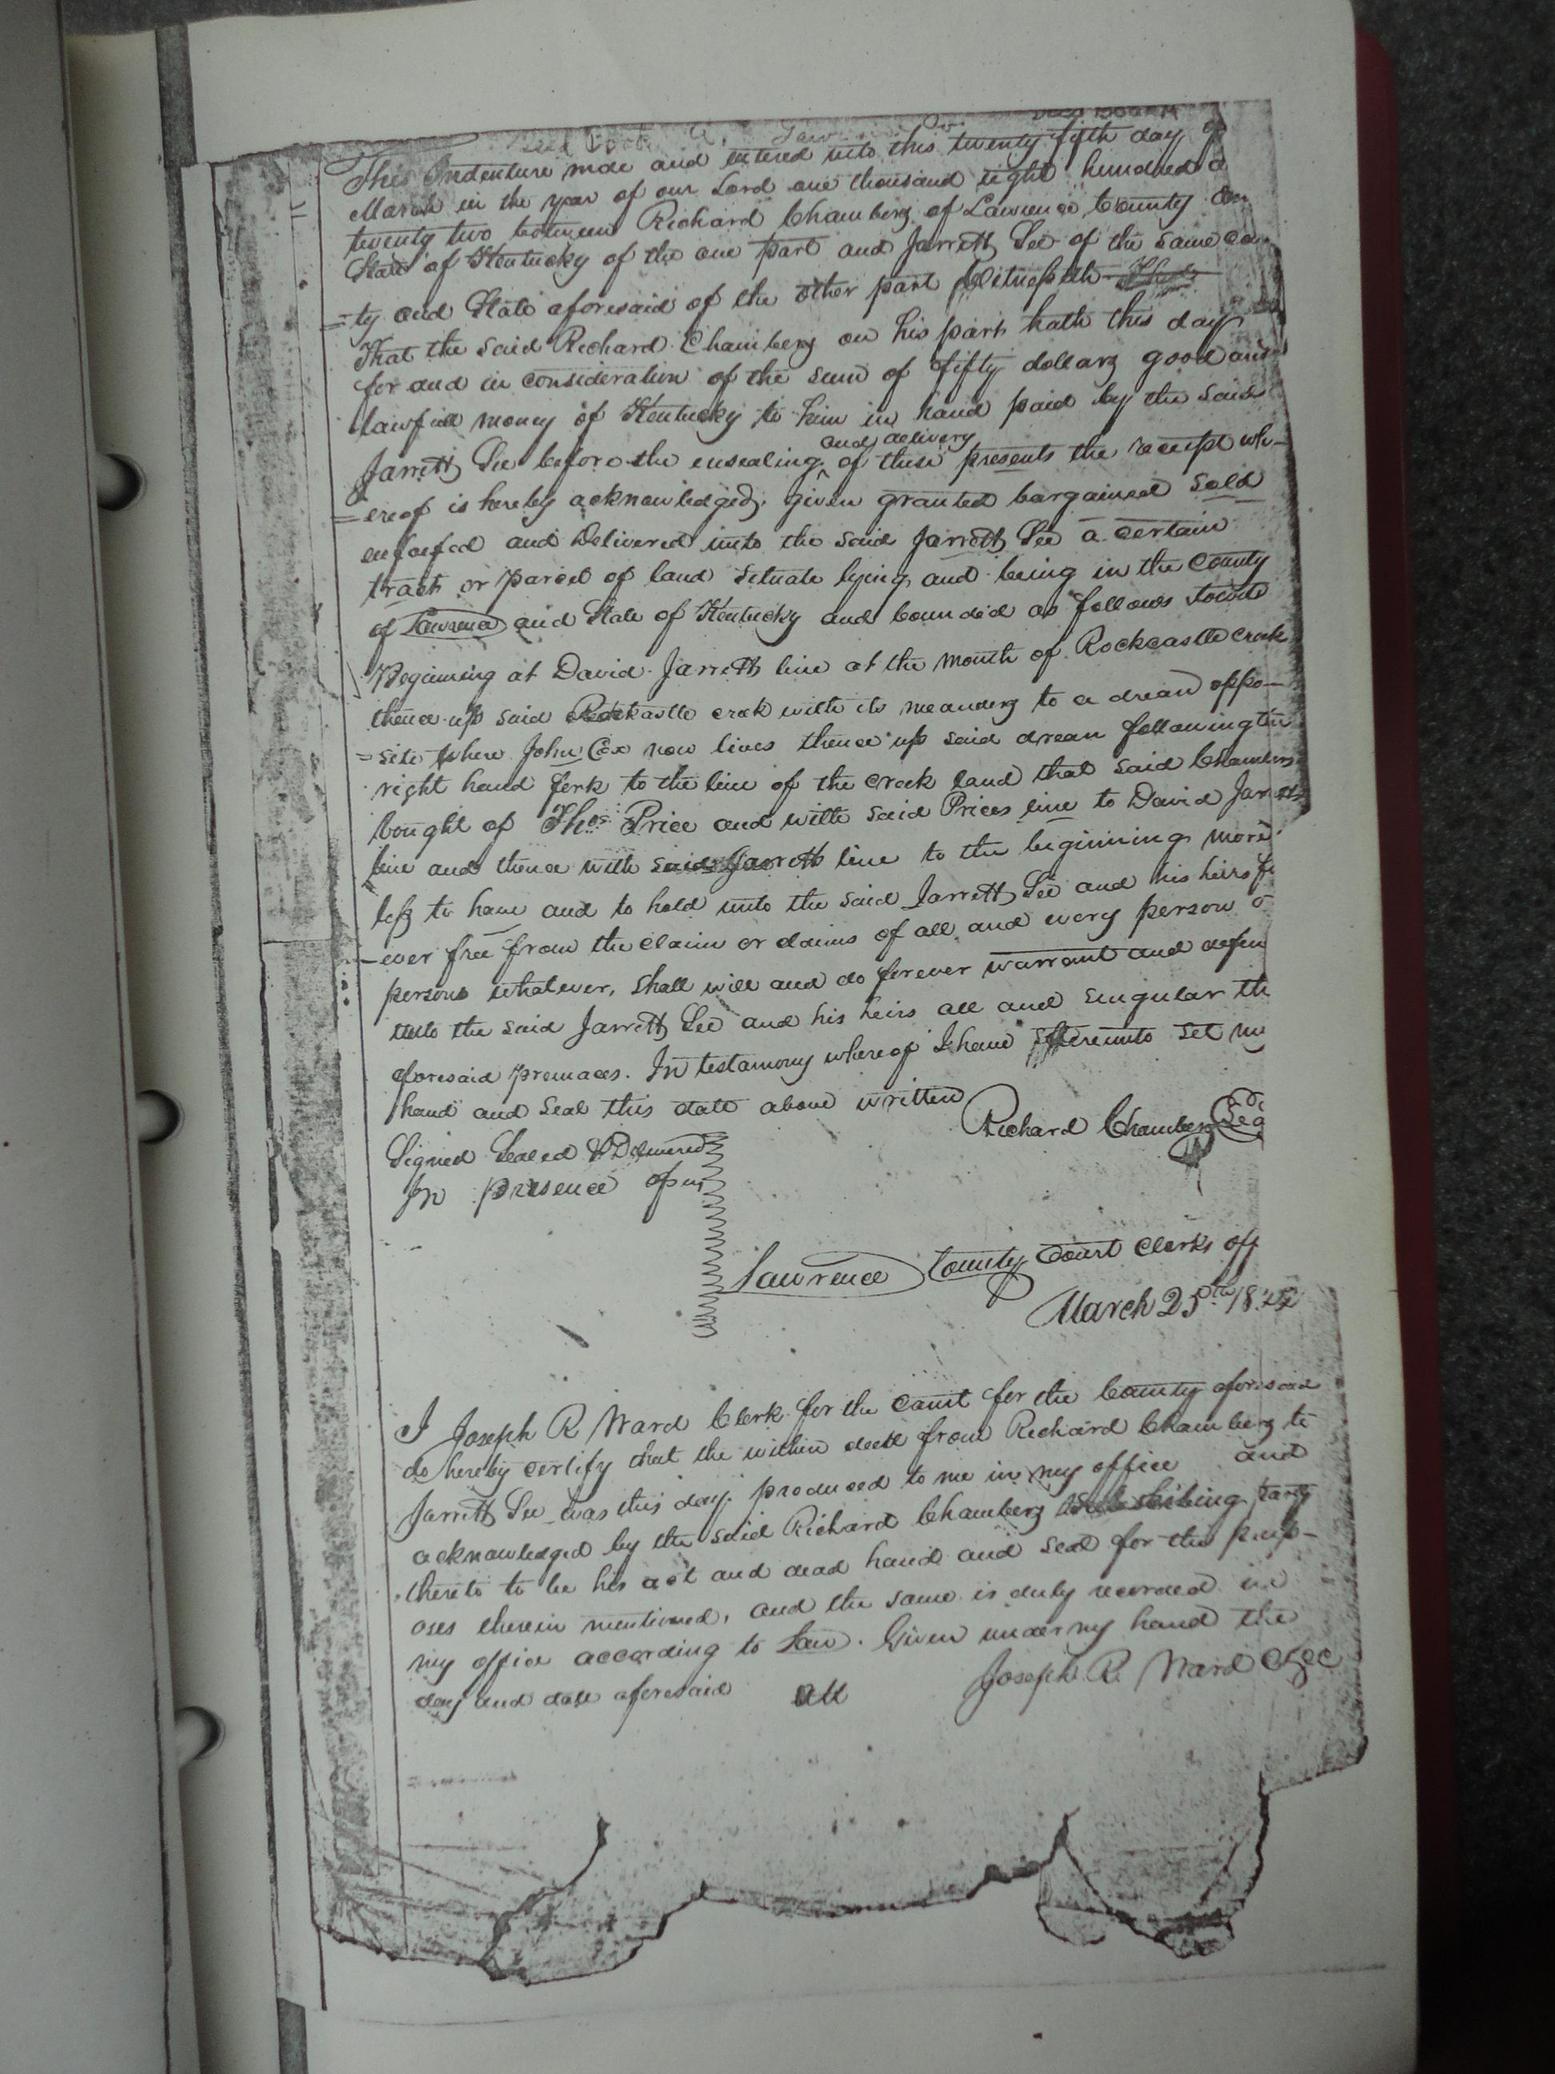 Deed Book A, Law Co. Deed Book A
This Indenture made and entered into this twenty fifth day of
March in the year of our Lord one thousand eight hundred a
twenty two between Richard Chambers of Lawrence County an
State of Kentucky of the one part and Jarrett Lee of the same coun
=ty and State aforesaid of the other part Witnesseth
That the said Richard Chambers on his part hath this day
for and in consideration of the sum of fifty dollars good and
lawfull money of Kentucky to him in hand paid by the said
Jarrett Lee before the ensealing and delivery of these presents the receipt wh-
=ereof is hereby acknowledged, given granted bargained sold
enfoefed and Delivered unto the said Jarrett Lee a certain
tract or parcel of land situate lying and being in the County
of Lawrence and State of Kentucky and bounded as follows towit
Beginning at David Jarrett line at the mouth of Rockcastle creek
thence up said Rockcastle creek with its meanders to a drean oppo-
=site where John Cox now lives thence up said drean following the
right hand fork to the line of the creek land that said Chambers
bought of Thos Price and with said Prices line to David Jarretts
line and thence with said Jarretts line to the beginning more
less to have and to hold unto the said Jarrett Lee and his heirs f
-ever free from the claim or claims of all and every person o
persons whatever, shall will and do forever warrant and defen
unto the said Jarrett Lee and his heirs all and singular th
aforesaid premaces. In testamony whereof I have hereunto set my
hand and seal this date above written
Richard Chambers Sea
Signed Sealed & Delivered
In presence of us
Lawrence County Court Clerks off
March 25th 1822
I Joseph R Ward Clerk for the Court for the County aforesaid
do hereby certify that the within deed from Richard Chambers to
Jarrett Lee was this day produced to me in my office and
acknowledged by the said Richard Chambers party
thereto to be his act and dead hand and seal for the purp-
oses therein mentioned, and the same is duly recorded in
my office according to Law. Given under my hand the
day and date aforesaid Att Joseph R. Ward